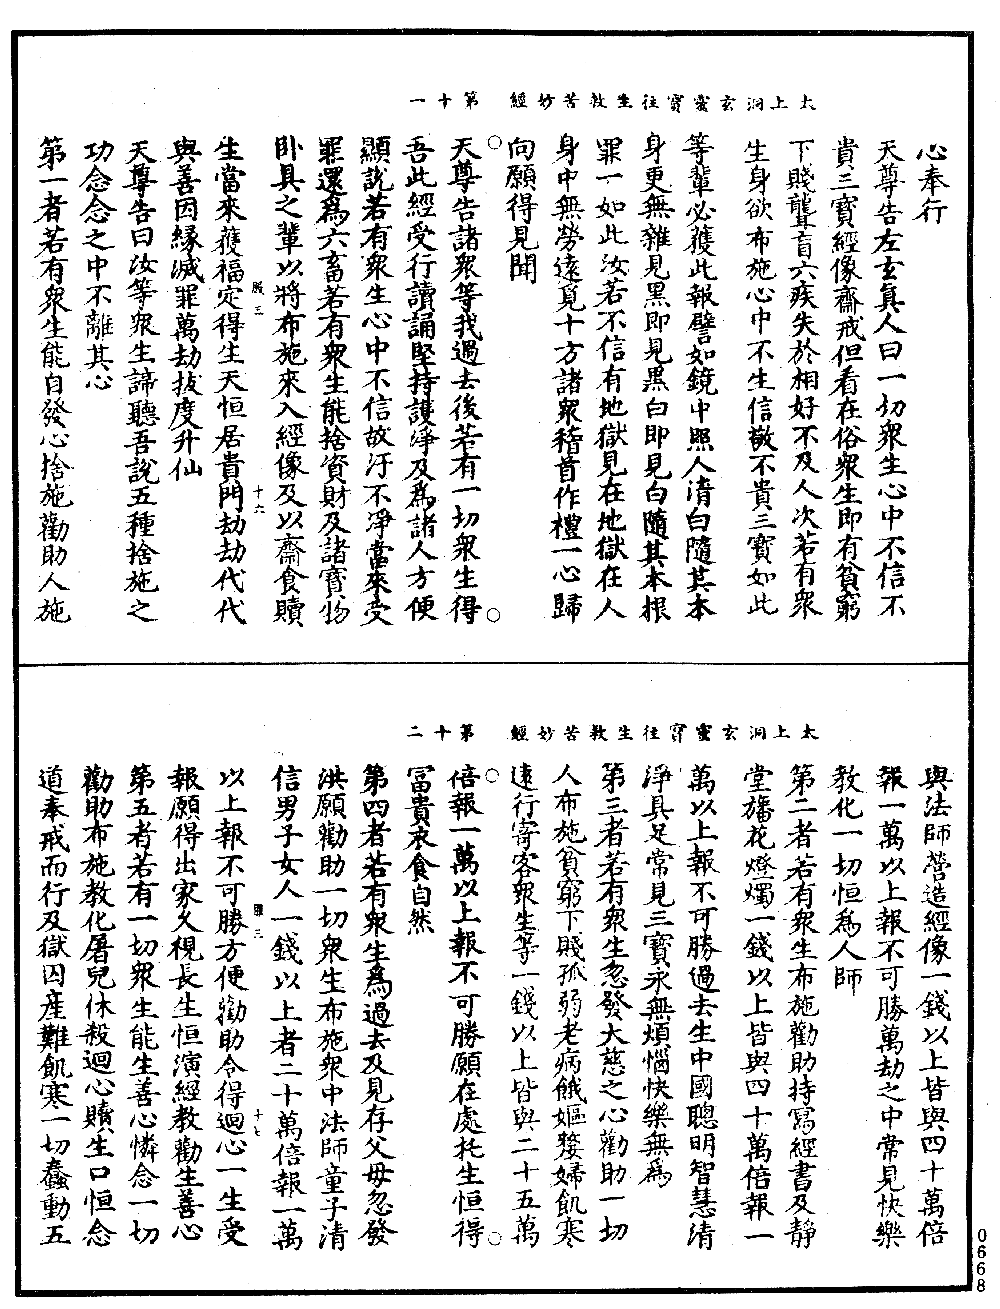 太上洞玄靈寶往生救苦妙經 第十一
心奉行
天尊告左玄真人曰一切衆生心中不信不
貴三寶經像齋戒但看在俗衆生即有貧窮
下賤聾盲六疾失於相好不及人次若有衆
生身欲布施心中不生信敬不貴三寶如此
等輩必獲此報譬如鏡中照人清白隨其本
身更無雜見黑即見黑白即見白隨其本根
罪一如此汝若不信有地獄見在地獄在人
身中無勞遠覓十方諸衆稽首作禮一心歸
向願得見聞
天尊告諸衆等我過去後若有一切衆生得
吾此經受行讀誦堅持護淨及爲諸人方便
顯說若有衆生心中不信故汙不淨當來受
罪還爲六畜若有衆生能捨資財及諸寶物
卧具之輩以將布施來入經像及以齋食贖
服三 十六
生當來獲福定得生天恒居貴門劫劫代代
與善因縁滅罪萬劫拔度升仙
天尊告曰汝等衆生諦聽吾說五種捨施之
功念念之中不離其心
第一者若有衆生能自發心捨施勸助人施
太上洞玄靈寶往生救苦妙經 第十二
與法師營造經像一錢以上皆與四十萬倍
報一萬以上報不可勝萬劫之中常見快樂
教化一切恒爲人師
第二者若有衆生布施勸助持寫經書及靜
堂旛花燈燭一錢以上皆與四十萬倍報一
萬以上報不可勝過去生中國聰明智慧清
淨具足常見三寶永無煩惱快樂無爲
第三者若有衆生忽發大慈之心勸助一切
人布施貧窮下賤孤弱老病餓嫗婺婦飢寒
遠行寄客衆生等一錢以上皆與二十五萬
倍報一萬以上報不可勝願在處托生恒得
冨貴衣食自然
第四者若有衆生爲過去及見存父母忽發
洪願勸助一切衆生布施衆中法師童子清
信男子女人一錢以上者二十萬倍報一萬
服三 十七
以上報不可勝方便勸助令得迴心一生受
報願得出家久視長生恒演經教勸生善心
第五者若有一切衆生能生善心憐念一切
勸助布施教化屠兒休殺迴心贖生口恒念
道奉戒而行及獄囚産難飢寒一切蠢動五
0668